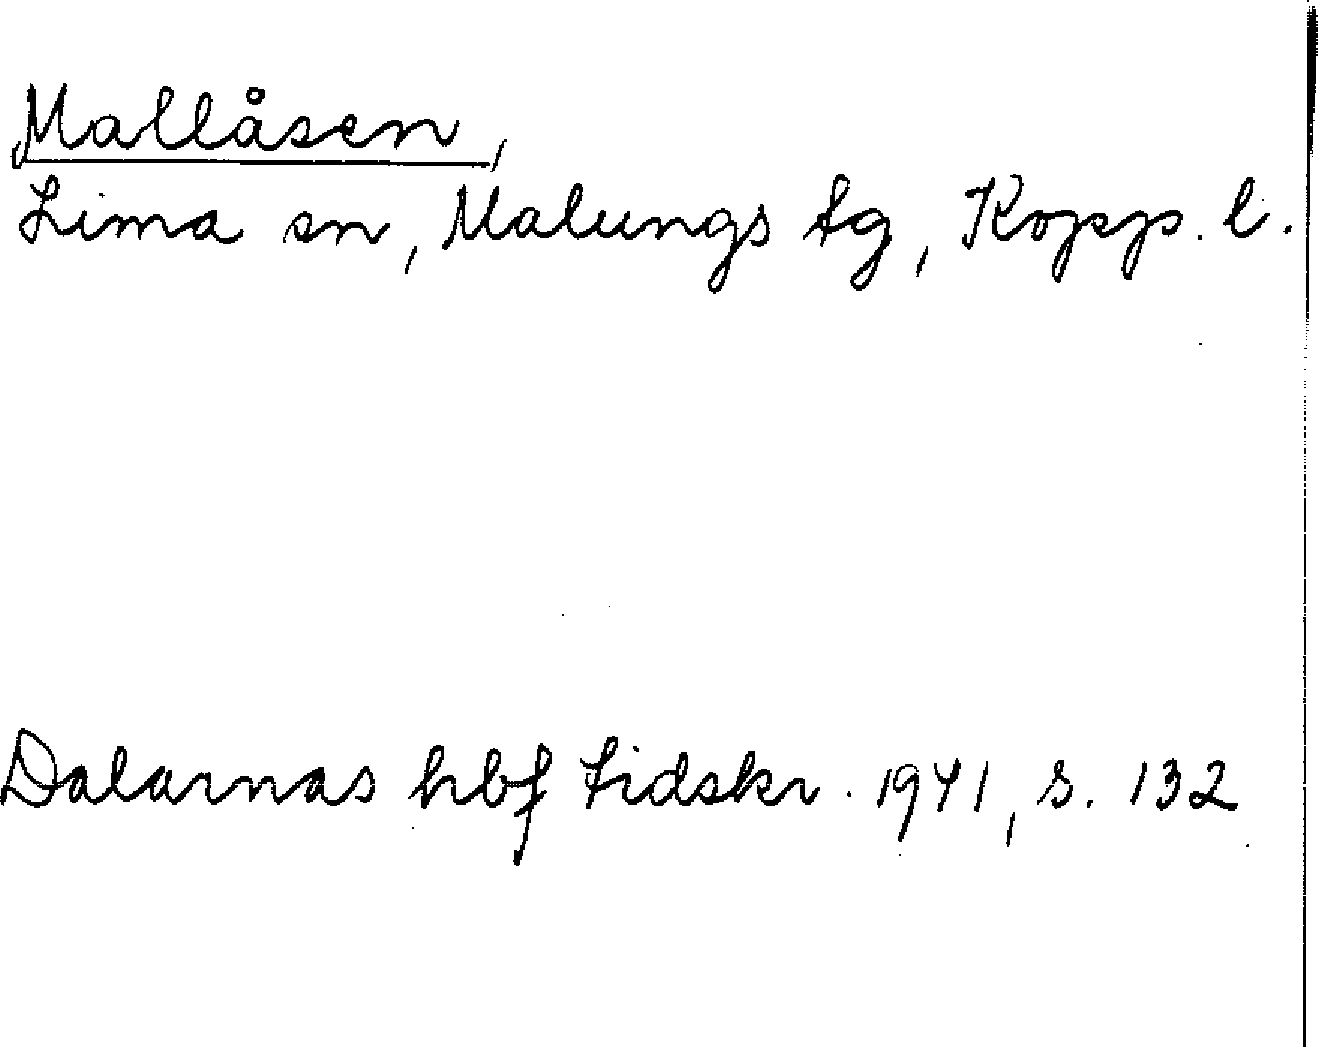 Mallåsen,
Lima sn, Malungs tg, Kopp. l.
Dalarnas hbf tidskr. 1941, s. 132